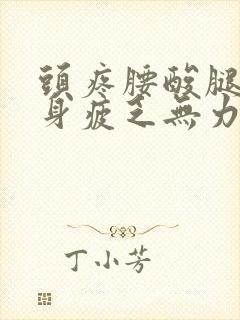 頭疼腰酸腿
身疲乏無力
丁小芳